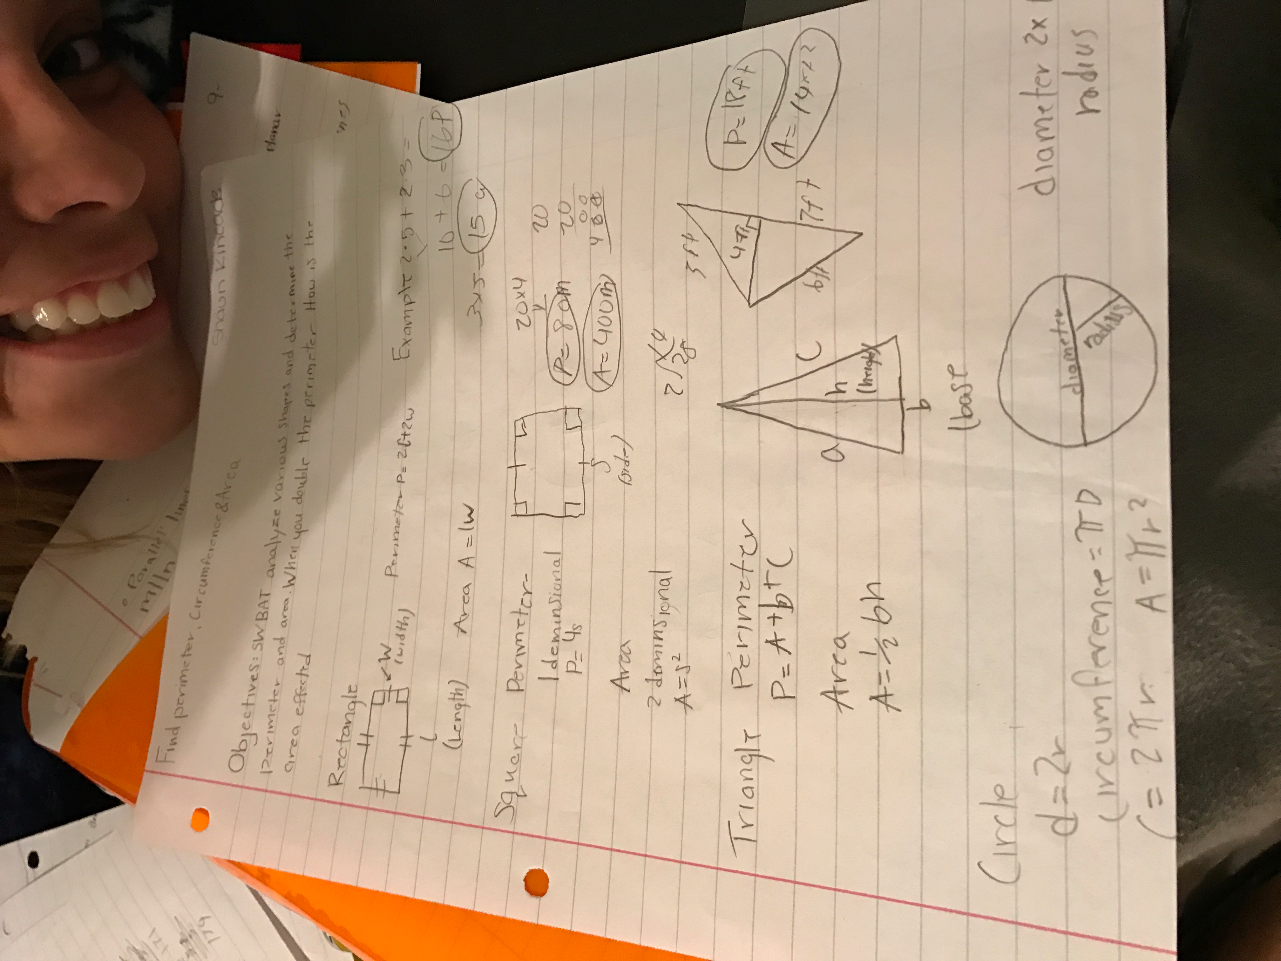 Shawn Kincade
9-
Find perimeter, Circumference & Area
Objectives: SWBAT analyze various shapes and determine the
perimeter and area. When you double the perimeter How is the
area effected
Rectangle
W
(width)
Perimeter P= 2l+2w
Example 2·5+2·3=
10+6=16P
L
(Length)
Area A=lW
3x5=15 a
Square Perimeter
1 deminsional
P=4s
S
(side)
20x4
P=80m
A=400m
20
20
00
400
Area
2 dominsional
A=s²
Triangle Perimeter
P=A+b+C
Area
A=½bh
a
h
(height)
C
b
(base
3ft
4ft
6ft
7ft
P=18ft
Circle
d=2r
Circumference=πD
C=2πr
A=πr²
diameter
radius
diameter 2x
radius
• Parallel lines
m//n
179